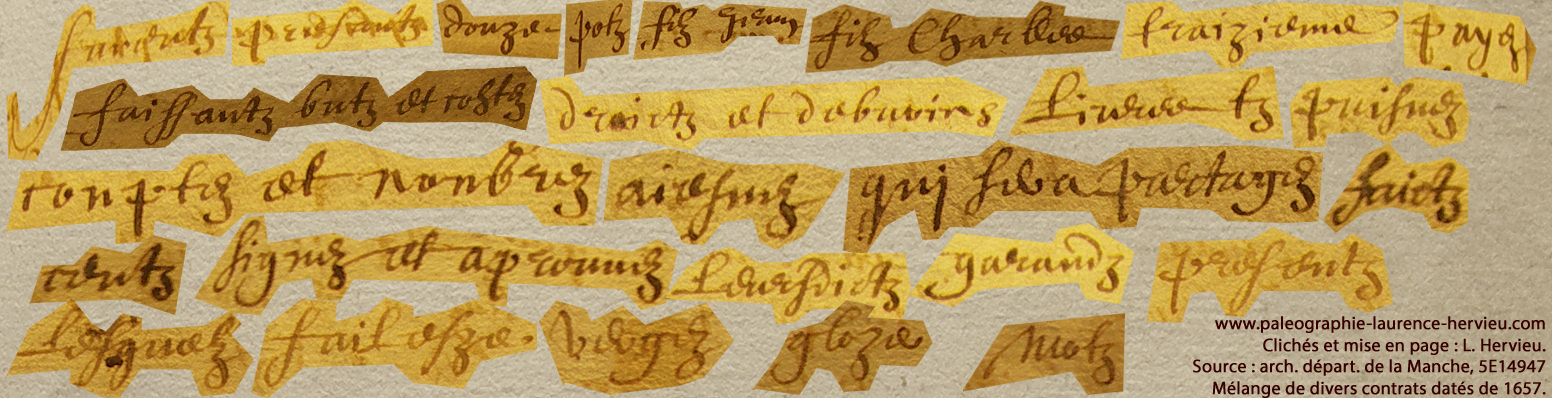 suventz presentz douze potz filz Jean filz Charlles traizieme payez
faissantz butz et costez droictz et debuoirs Liures tz puisnez
comptez et nonbrez aiesnez quj sera partagez faictz
centz signez et aprouuez Lesdictz garandz presentz
Lesquelz faict esze vergez gloze motz
www.paleographie-laurence-hervieu.com
Clichés et mise en page : L. Hervieu.
Source : arch. départ. de la Manche, 5E14947
Mélange de divers contrats datés de 1657.